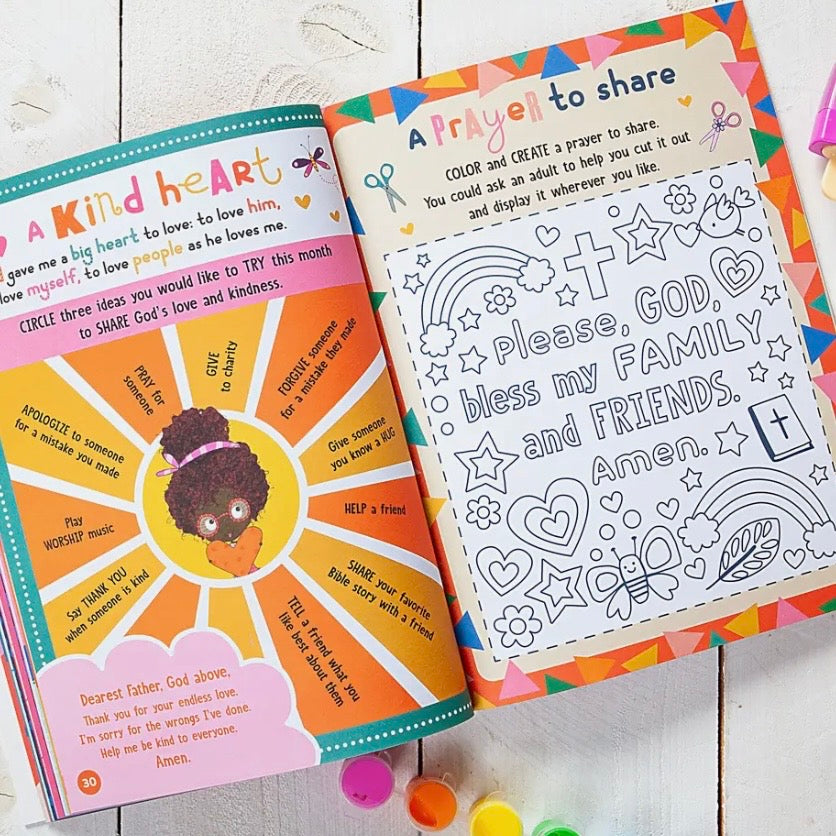 A Kind heART
gave me a big heart to love: to love him,
love myself, to love people as he loves me.
CIRCLE three ideas you would like to TRY this month
to SHARE God's love and kindness.
PRAY for
someone
GIVE
to charity
FORGIVE someone
for a mistake they made
Give someone
you know a HUG
HELP a friend
SHARE your favorite
Bible story with a friend
TELL a friend what you
like best about them
Say THANK YOU
when someone is kind
Play
WORSHIP music
APOLOGIZE to someone
for a mistake you made
Dearest Father, God above,
Thank you for your endless love.
I'm sorry for the wrongs I've done.
Help me be kind to everyone.
Amen.
30
A PrAyeR to share
COLOR and CREATE a prayer to share.
You could ask an adult to help you cut it out
and display it wherever you like.
Please, GOD,
bless my FAMILY
and FRIENDS.
Amen.